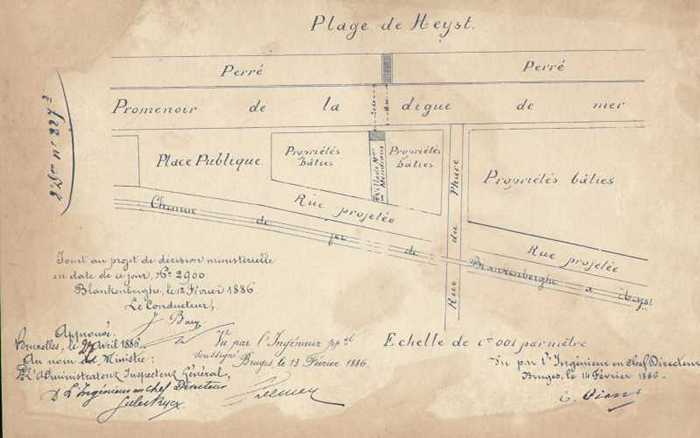 Plage de Heyst.
Perré
Perré
Promenoir de la digue de mer
Place Publique
Propriétés bâties
Propriétés bâties
Propriétés bâties
Rue du Phare
Rue projetée
Rue projetée
Chemin de fer de Blankenberghe à Heyst
Joint au projet de décision ministérielle
en date de ce jour, N° 2900
Blankenberghe, le 12 Février 1886
Le Conducteur,
Approuvé:
Bruxelles, le Avril 1886
Au nom du Ministre:
L'Administrateur Inspecteur Général,
L'Ingénieur en chef Directeur
Vu par l'Ingénieur pp.al
soussigné Bruges, le 13 Février 1886.
Echelle de 0m001 par mètre
Vu par l'Ingénieur en Chef Directeur
Bruges, le 14 Février 1886.